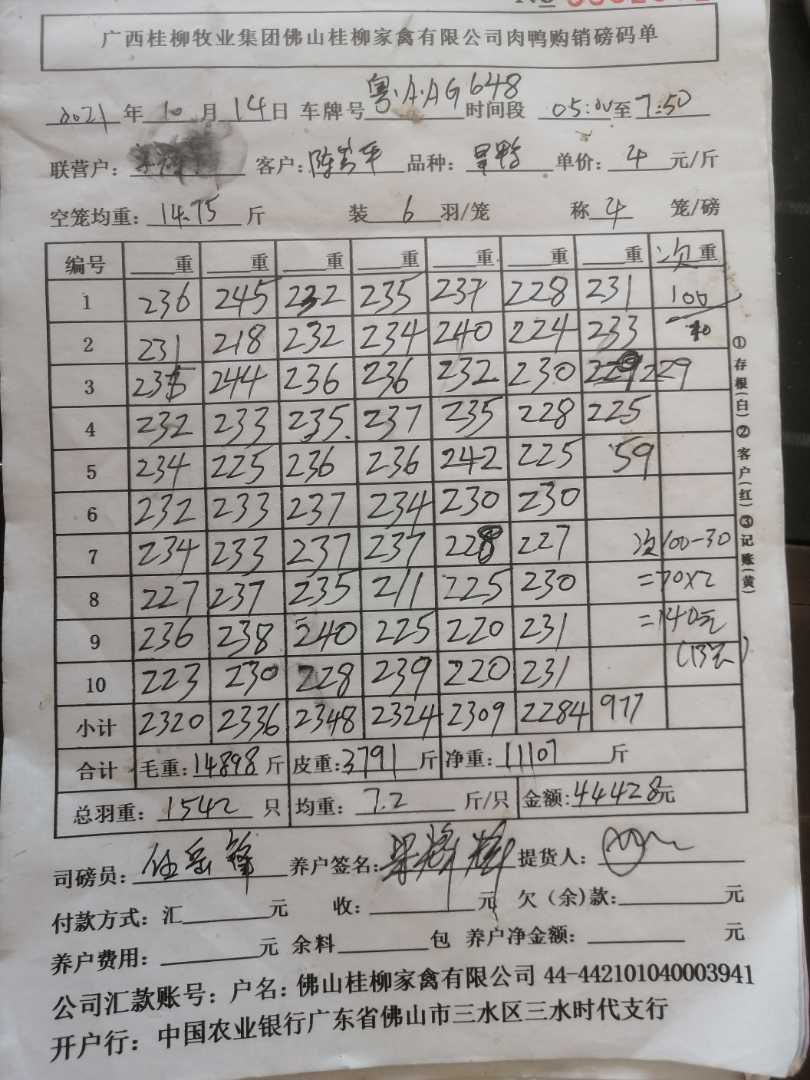 广西桂柳牧业集团佛山桂柳家禽有限公司肉鸭购销磅码单
2021 年 10 月 14 日 车牌号 粤·A·AG648 时间段 05:00 至 7:50
联营户: 客户: 陈 平 品种: 单价: 4 元/斤
空笼均重: 14.75 斤 装 6 羽/笼 称 4 笼/磅
编号 重 重 重 重 重 重 重 次 重
1 236 245 232 235 237 228 231 100
2 231 218 232 234 240 224 233
3 235 244 236 236 232 230 229 229
4 232 233 235 237 235 228 225
5 234 225 236 236 242 225 59
6 232 233 237 234 230 230
7 234 233 237 237 228 227 次100-30
8 227 237 235 211 225 230 =70×2
9 236 238 240 225 220 231 =140元
10 223 230 228 239 220 231
小计 2320 2336 2348 2324 2309 2284 977
合计 毛重: 14898 斤 皮重: 3791 斤 净重: 11107 斤
总羽重: 1542 只 均重: 7.2 斤/只 金额: 44428元
司磅员: 养户签名: 提货人:
付款方式: 汇 元 收: 元 欠(余)款: 元
养户费用: 元 余料 包 养户净金额: 元
公司汇款账号: 户名: 佛山桂柳家禽有限公司 44-442101040003941
开户行: 中国农业银行广东省佛山市三水区三水时代支行
①存根(白)②客户(红)③记账(黄)